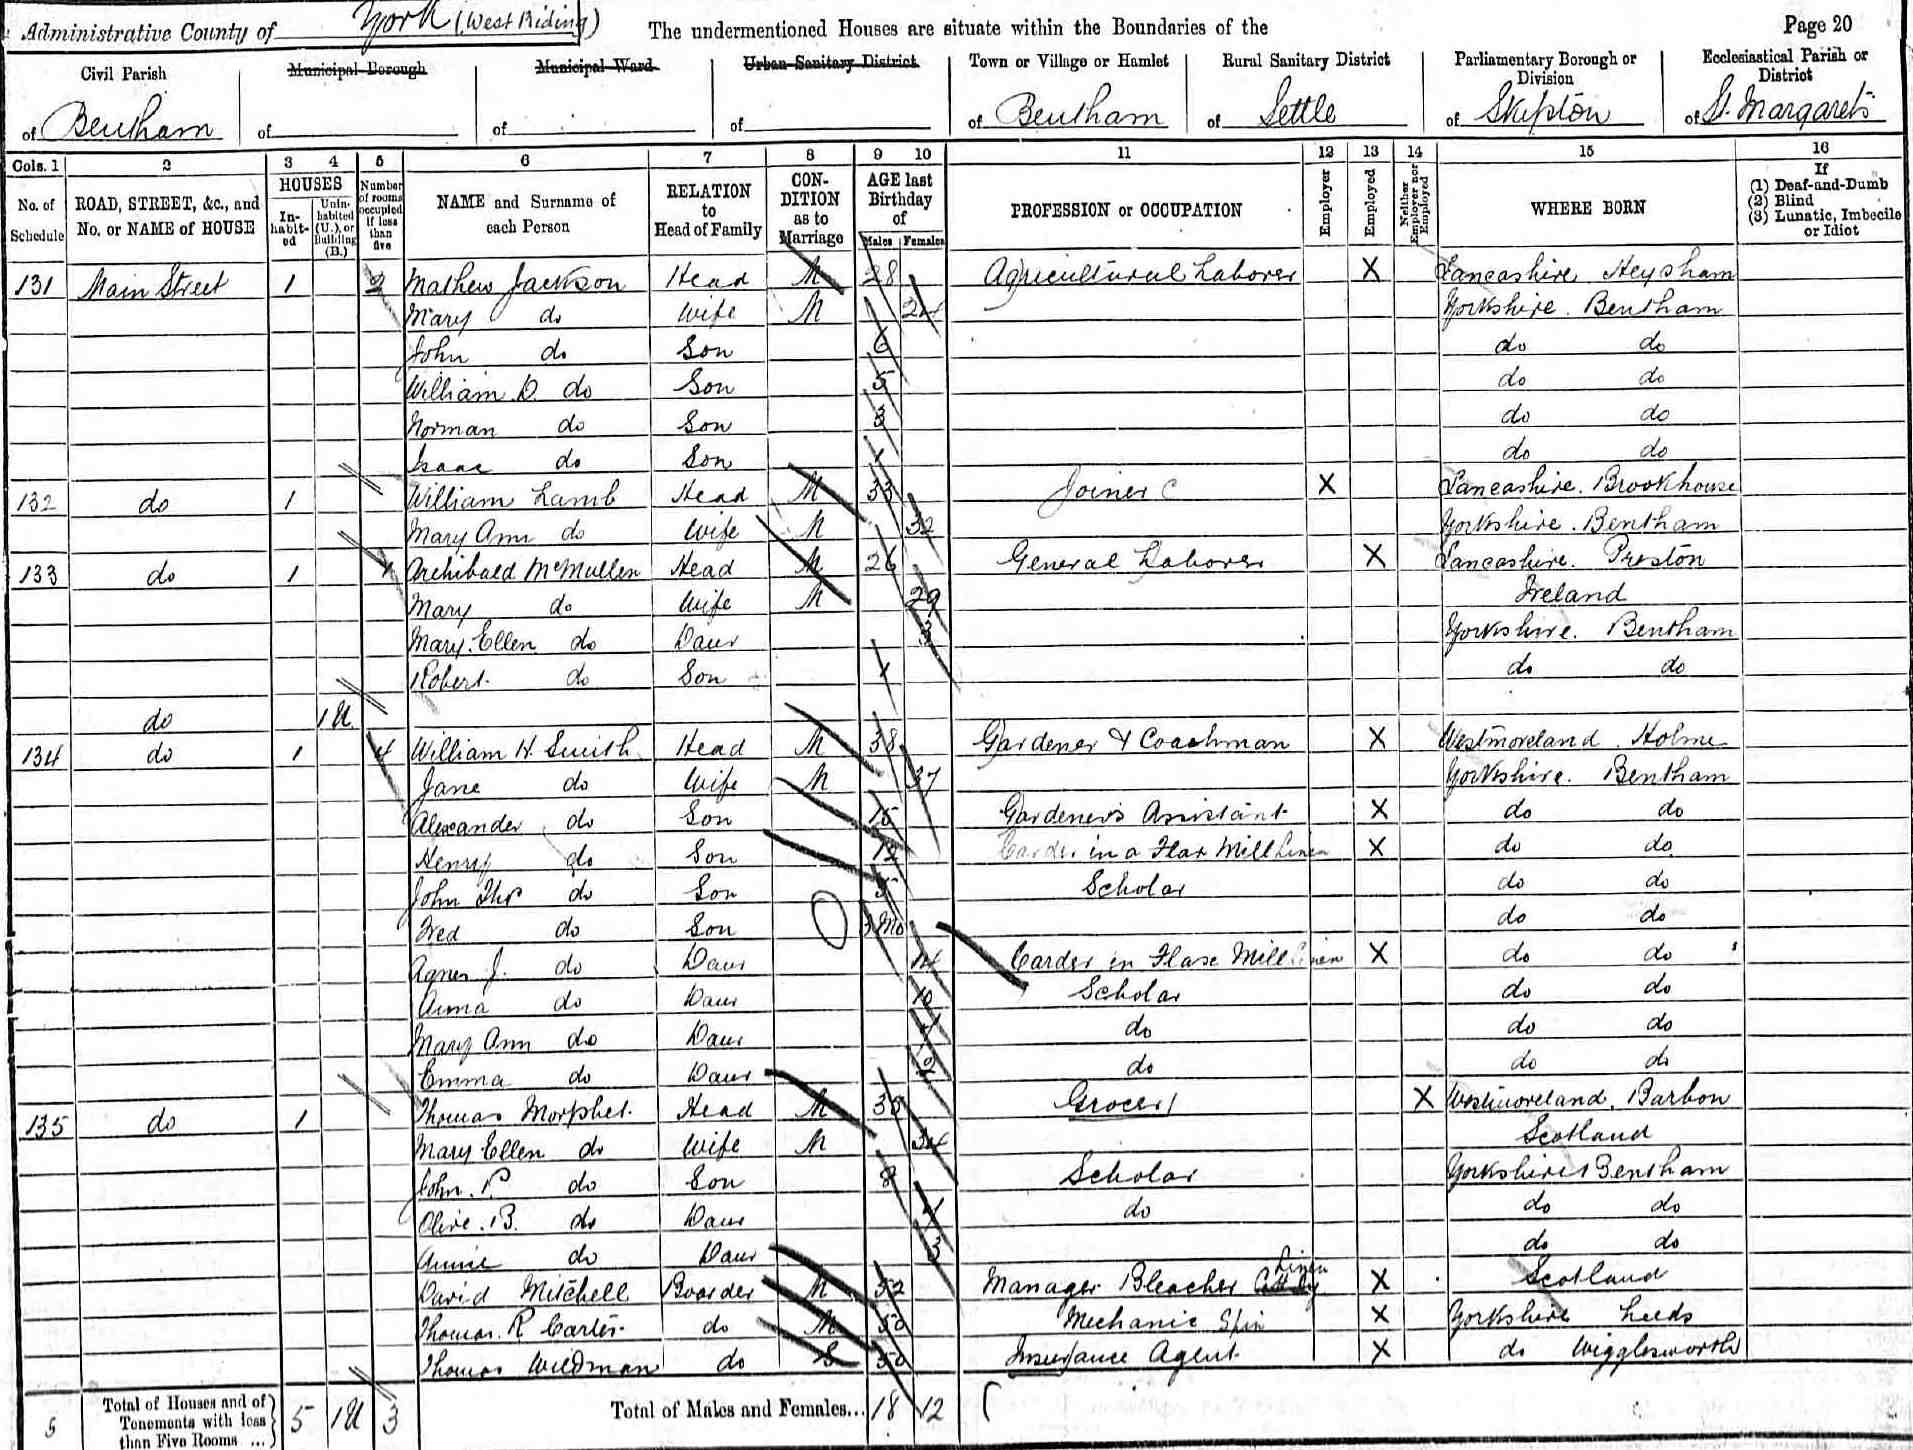 Administrative County of York (West Riding) The undermentioned Houses are situate within the Boundaries of the Page 20
Civil Parish Municipal Borough Municipal Ward Urban Sanitary District Town or Village or Hamlet Rural Sanitary District Parliamentary Borough or Division Ecclesiastical Parish or District
of Bentham of of of of Bentham of Settle of Skipton of St. Margaret's
Cols. 1 2 3 4 5 6 7 8 9 10 11 12 13 14 15 16
No. of Schedule ROAD, STREET, &c., and No. or NAME of HOUSE HOUSES Inhabited Uninhabited (U.), or Building (B.) Number of rooms occupied if less than five NAME and Surname of each Person RELATION to Head of Family CONDITION as to Marriage AGE last Birthday of Males Females PROFESSION or OCCUPATION Employer Employed Neither Employer nor Employed WHERE BORN If (1) Deaf-and-Dumb (2) Blind (3) Lunatic, Imbecile or Idiot
131 Main Street 1 Mathew Jackson Head M 28 Agricultural Laborer X Lancashire. Heysham
Mary do Wife M 24 Yorkshire. Bentham
John do Son 6 do do
William D. do Son 5 do do
Norman do Son 3 do do
Isaac do Son 1 do do
132 do 1 William Lamb Head M 33 Joiner X Lancashire. Brookhouse
Mary Ann do Wife M 32 Yorkshire. Bentham
133 do 1 4 Archibald McMullen Head M 26 General Laborer X Lancashire. Preston
Mary do Wife M 29 Ireland
Mary Ellen do Daur 3 Yorkshire. Bentham
Robert do Son 1 do do
do 1 U
134 do 1 4 William H. Smith Head M 38 Gardener & Coachman X Westmoreland. Holme
Jane do Wife M 37 Yorkshire. Bentham
Alexander do Son 15 Gardener's Assistant X do do
Henry do Son 12 Carder in a Flax Mill Linen X do do
John Thos do Son 5 Scholar do do
Fred do Son 3 Mo do do
Agnes J. do Daur 14 Carder in Flax Mill Linen X do do
Anna do Daur 10 Scholar do do
Mary Ann do Daur do do do
Emma do Daur 2 do do do
135 do 1 Thomas Morphet Head M 35 Grocer X Westmoreland. Barbon
Mary Ellen do Wife M 34 Scotland
John. P. do Son 8 Scholar Yorkshire Bentham
Olive. B. do Daur do do do
Annie do Daur 3 do do
David Mitchell Boarder M 52 Manager Bleacher Linen X Scotland
Thomas. R Carter do M 50 Mechanic Spin X Yorkshire Leeds
Thomas Wildman do S 50 Insurance Agent X do Wigglesworth
5 Total of Houses and of Tenements with less than Five Rooms ... 5 1U 3 Total of Males and Females... 18 12